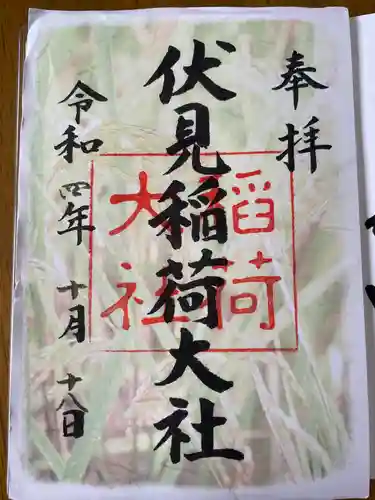 奉拝
伏見稲荷大社
稲荷
大社
令和四年十月十八日